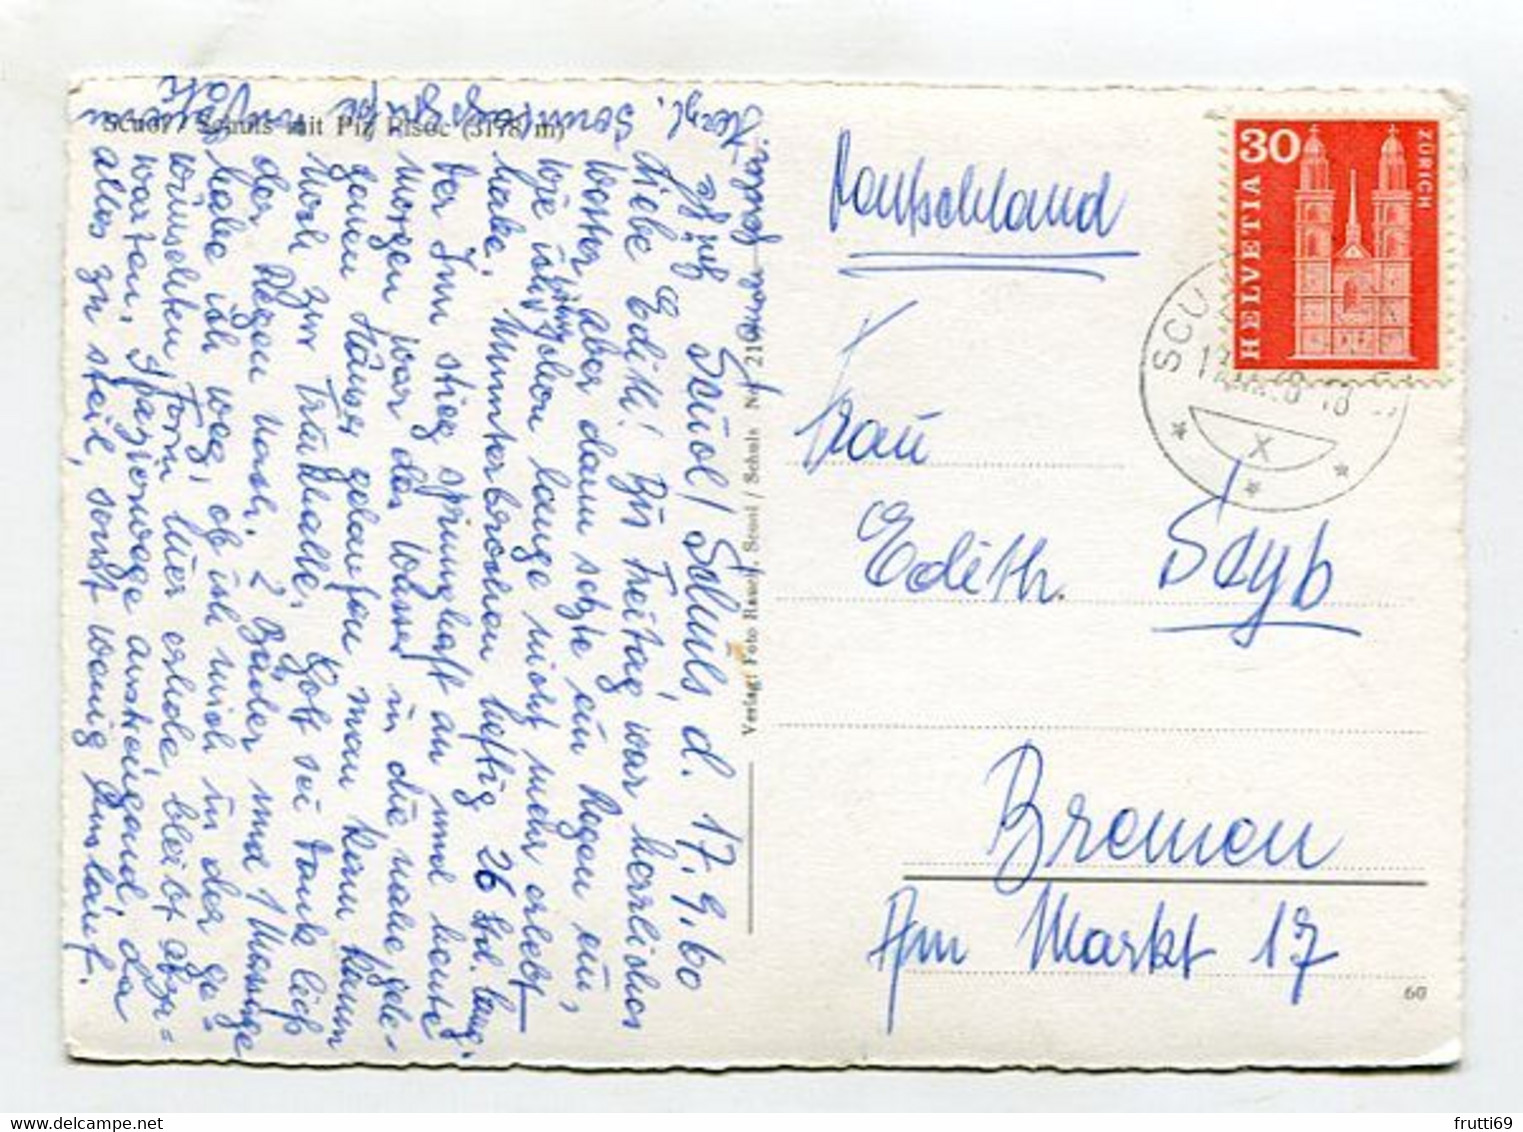 Scuol / Schuls mit Piz Pisoc (3178 m)
Scuol / Schuls, d. 17.9.60
Liebe Edith! Bis Freitag war herrliches
Wetter aber dann setzte ein Regen ein,
wie ich ihn schon lange nicht mehr erlebt
habe. Ununterbrochen heftig 26 Std. lang.
Der Inn stieg sprunghaft an und heute
morgen war das Wasser in die nahe gele-
genen Häuser gelaufen man kann kaum
noch zur Trinkhalle. Gott sei Dank ließ
der Regen nach. 2 Bäder und 1 Massage
habe ich weg, ob ich mich in der ge-
wünschten Form hier erhole bleibt abzu-
warten. Spazierwege anstrengend da
alles zu steil, sonst wenig Auslauf.
Herzl.
Verlag: Foto Rauch, Scuol / Schuls Nr. 21
Deutschland
Frau
Edith Seyb
Bremen
Am Markt 17
60
30
HELVETIA
ZÜRICH
SCU
X
frutti69